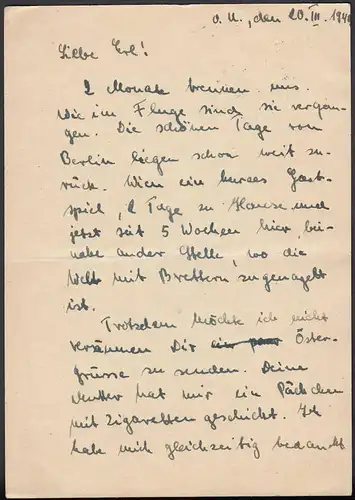 O. U., den 20. III. 194
Liebe Erl!
2 Monate trennen uns.
Wie im Fluge sind sie vergan-
gen. Die schönen Tage von
Berlin liegen schon weit zu-
rück. Wien ein kurzes Gast-
spiel, 2 Tage zu Hause und
jetzt seit 5 Wochen hier, bei-
nahe an der Stelle, wo die
Welt mit Brettern zugenagelt
ist.
Trotzdem möchte ich nicht
versäumen Dir ein paar Öster-
grüsse zu senden. Deine
Mutter hat mir ein Päckchen
mit Zigaretten geschickt. Ich
habe mich gleichzeitig bedankt